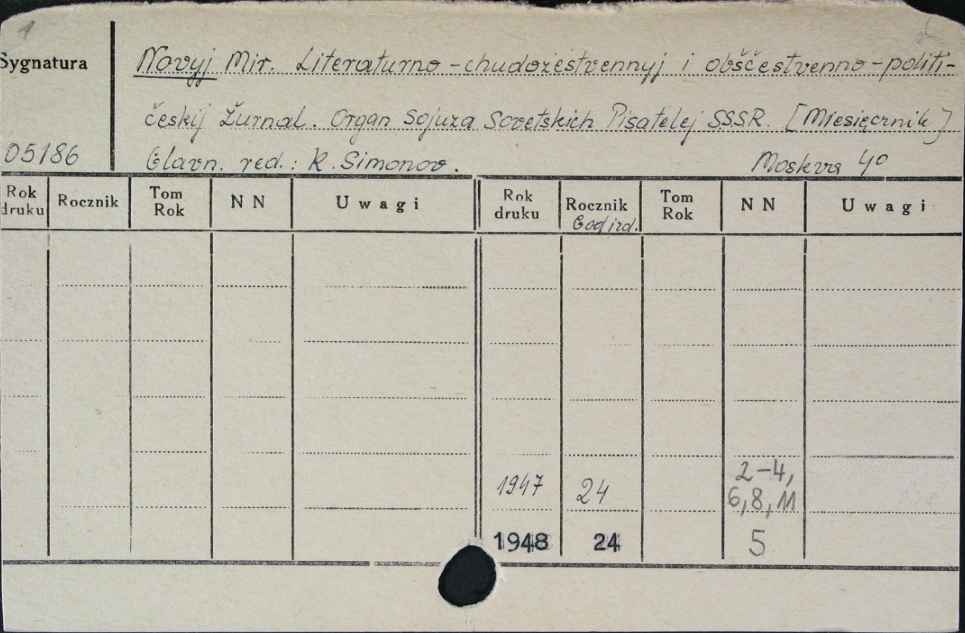 Sygnatura Novyj Mir. Literaturno-chudožestvennyj i obščestvenno-politi-
českij Žurnal. Organ Sojuza Sovetskich Pisatelej SSSR. [Miesięcznik]
05186 Glavn. red.: K. Simonov. Moskva 4°
Rok druku Rocznik Tom Rok NN Uwagi Rok druku Rocznik God izd. Tom Rok NN Uwagi
1947 24 2-4,
6, 8, 11
1948 24 5